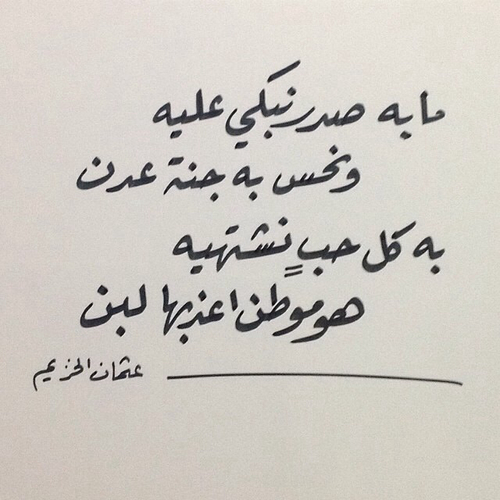 مابه صدر نبكي عليه
ونحس به جنة عدن
به كل حبٍ نشتهيه
هو موطن اعذبها لبن
عثمان الخزيم